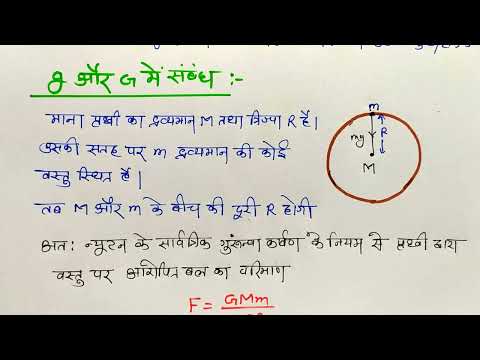 g और G में संबंध :-
माना पृथ्वी का द्रव्यमान M तथा त्रिज्या R है।
उसकी सतह पर m द्रव्यमान की कोई
वस्तु स्थित है।
तब M और m के बीच की दूरी R होगी
अतः न्यूटन के सार्वत्रिक गुरुत्वाकर्षण के नियम से पृथ्वी द्वारा
वस्तु पर आरोपित बल का परिमाण
F = GMm
m
R
mg
M